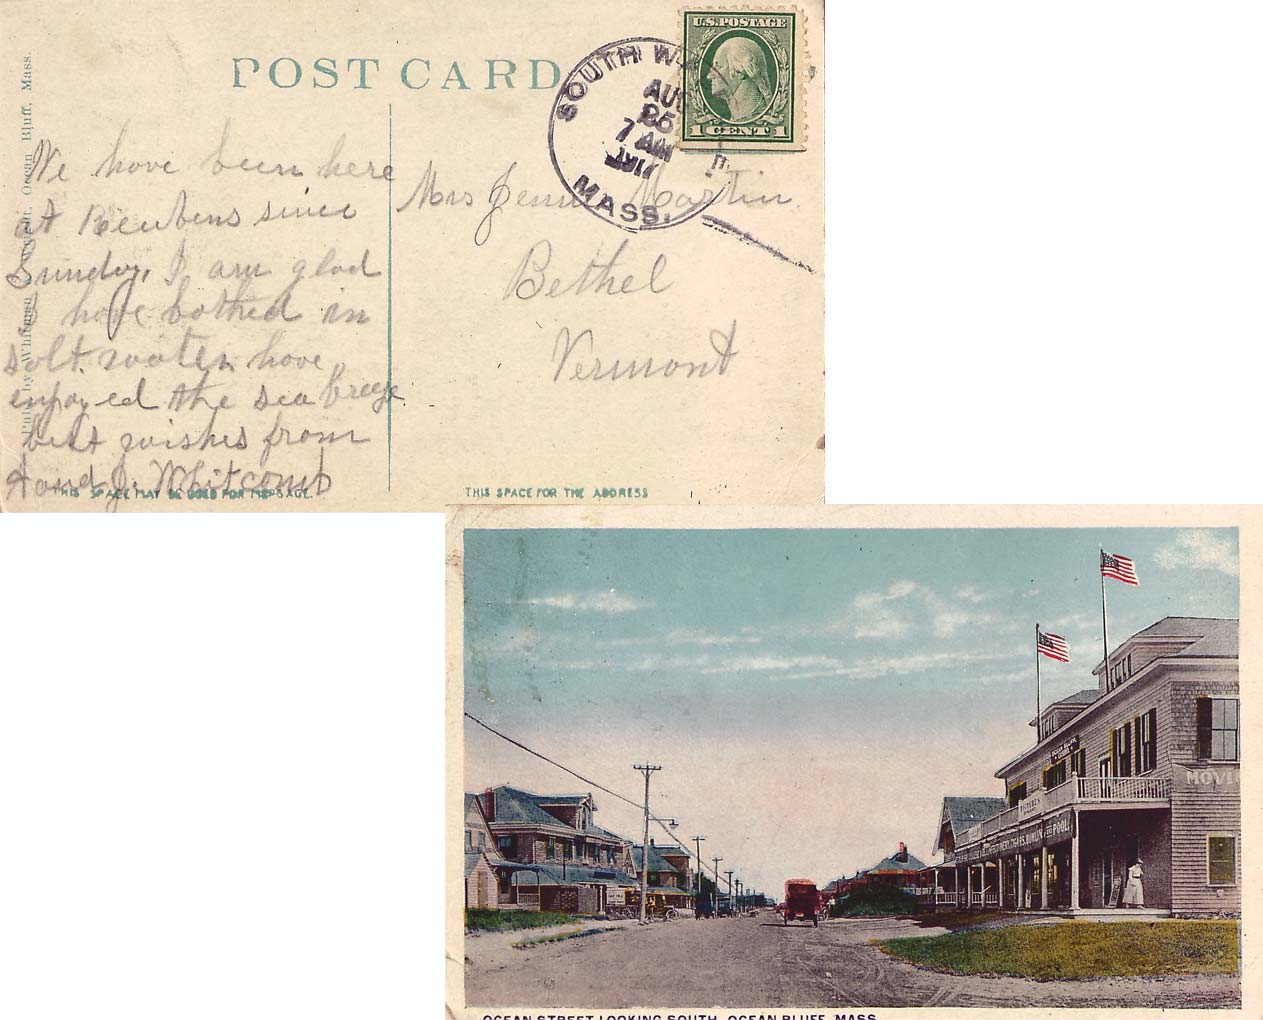 POST CARD
U.S. POSTAGE
1 CENT 1
SOUTH
AUG
25
7 AM
1917
MASS.
Pub. by Whitman Wright, Ocean Bluff, Mass.
We have been here
at Reubens since
Sunday, I am glad
I have bathed in
salt water, have
enjoyed the sea breeze
best wishes from
J. Whitcomb
THIS SPACE MAY BE USED FOR MESSAGE.
Mrs Jennie Martin
Bethel
Vermont
THIS SPACE FOR THE ADDRESS
MOVI
BOWLING POOL
OCEAN STREET LOOKING SOUTH, OCEAN BLUFF, MASS.